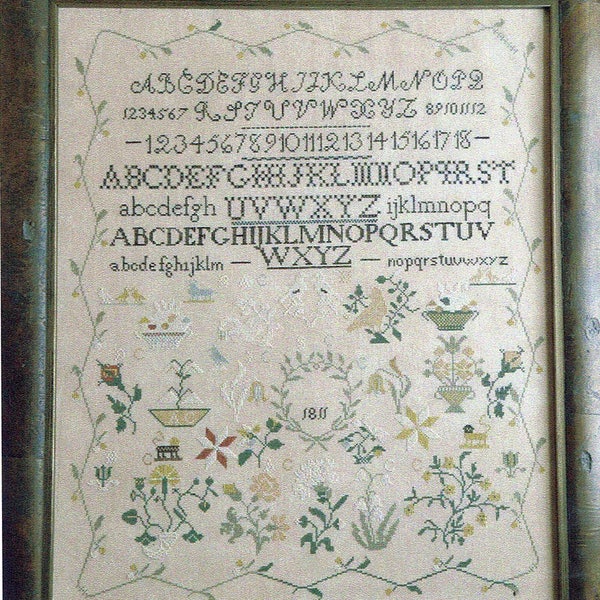 ABCDEFGHIJKLMNOPQ
1234567 RSTUVWXYZ 89101112
— 123456789101112131415161718 —
ABCDEFGHIJKLMNOPQRST
abcdefgh UVWXYZ ijklmnopq
ABCDEFGHIJKLMNOPQRSTUV
abcdefghijklm — WXYZ — nopqrstuvwxyz
1811